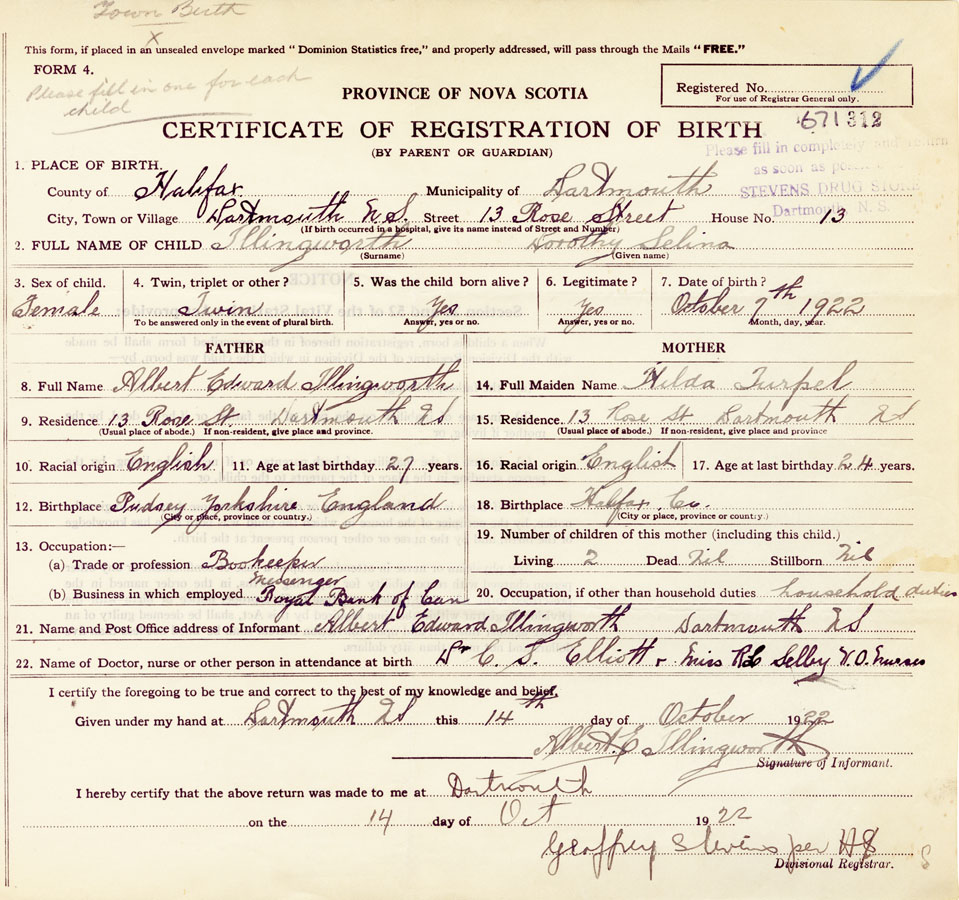 Town Birth
This form, if placed in an unsealed envelope marked "Dominion Statistics free," and properly addressed, will pass through the Mails "FREE."
FORM 4.
Please fill in one for each
child
Registered No.
For use of Registrar General only.
671312
PROVINCE OF NOVA SCOTIA
CERTIFICATE OF REGISTRATION OF BIRTH
(BY PARENT OR GUARDIAN)
Please fill in completely and return
as soon as
STEVENS DRUG STORE
Dartmouth, N. S.
1. PLACE OF BIRTH.
County of Halifax Municipality of Dartmouth
City, Town or Village Dartmouth N.S. Street 13 Rose Street House No. 13
(If birth occurred in a hospital, give its name instead of Street and Number)
2. FULL NAME OF CHILD Illingworth Dorothy Selina
(Surname) (Given name)
3. Sex of child. 4. Twin, triplet or other? 5. Was the child born alive? 6. Legitimate? 7. Date of birth?
Female Twin Yes Yes October 7th 1922
To be answered only in the event of plural birth. Answer, yes or no. Answer, yes or no. Month, day, year.
FATHER MOTHER
8. Full Name Albert Edward Illingworth 14. Full Maiden Name Hilda Turpel
9. Residence 13 Rose St. Dartmouth NS 15. Residence 13 Rose St Dartmouth NS
(Usual place of abode.) If non-resident, give place and province. (Usual place of abode.) If non-resident, give place and province
10. Racial origin English 11. Age at last birthday 27 years. 16. Racial origin English 17. Age at last birthday 24 years.
12. Birthplace Pudsey Yorkshire England 18. Birthplace Halifax Co.
(City or place, province or country.) (City or place, province or country.)
13. Occupation:— 19. Number of children of this mother (including this child.)
(a) Trade or profession Bookeeper Living 2 Dead Nil Stillborn Nil
Messenger
(b) Business in which employed Royal Bank of Can 20. Occupation, if other than household duties household duties
21. Name and Post Office address of Informant Albert Edward Illingworth Dartmouth NS
22. Name of Doctor, nurse or other person in attendance at birth Dr C. S. Elliott + Miss Selby V.O. Nurses
I certify the foregoing to be true and correct to the best of my knowledge and belief.
Given under my hand at Dartmouth NS this 14th day of October 1922
Albert. E Illingworth
Signature of Informant.
I hereby certify that the above return was made to me at Dartmouth
on the 14 day of Oct 1922
Geoffrey Stevens per HS
Divisional Registrar.